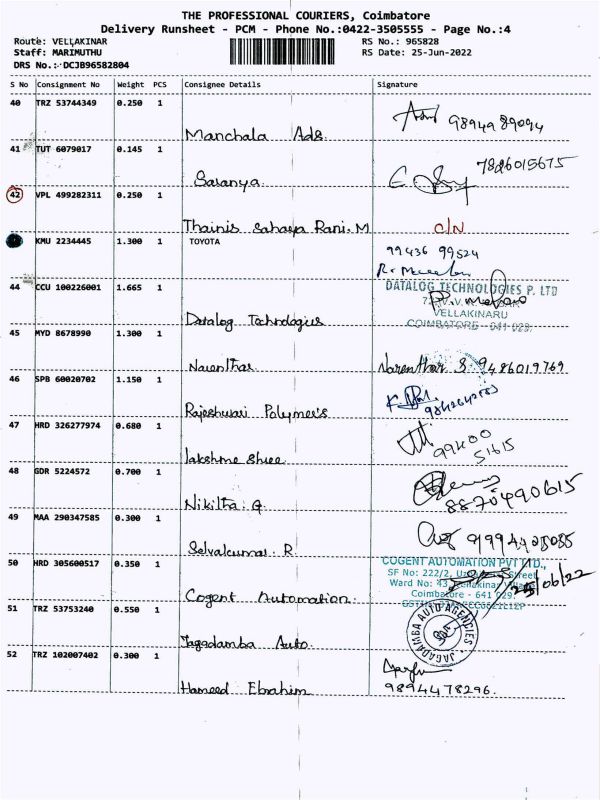 THE PROFESSIONAL COURIERS, Coimbatore
Delivery Runsheet - PCM - Phone No.:0422-3505555 - Page No.:4
Route: VELLAKINAR RS No.: 965828
Staff: MARIMUTHU RS Date: 25-Jun-2022
DRS No.: DCJB96582804
S No Consignment No Weight PCS Consignee Details Signature
40 TRZ 53744349 0.250 1
Manchala Ads. 9894989094
41 TUT 6079017 0.145 1
Saranya 7826015675
42 VPL 499282311 0.250 1
Thainis Sahaya Rani. M C/N
KMU 2234445 1.300 1 TOYOTA
99436 99524
44 CCU 100226001 1.665 1
DATALOG TECHNOLOGIES P. LTD
VELLAKINARU
Datalog Technologies COIMBATORE - 641 029.
45 MYD 8678990 1.300 1
Narenthar Narenthar S 9486019769
46 SPB 60020702 1.150 1
Rajeshwari Polymers
47 HRD 326277974 0.680 1
lakshme Shree 99400 51615
48 GDR 5224572 0.700 1
Nikitha. G 8870490615
49 MAA 290347585 0.300 1
Selvakumar. R
50 HRD 305600517 0.350 1
COGENT AUTOMATION PVT LTD.,
SF No: 222/2, Street
Ward No: 43
Cogent Automation Coimbatore - 641 029.
25/06/22
51 TRZ 53753240 0.550 1
Jagadamba Auto. JAGADAMBA AUTO AGENCIES
52 TRZ 102007402 0.300 1
Hameed Ebrahim 9894478296.